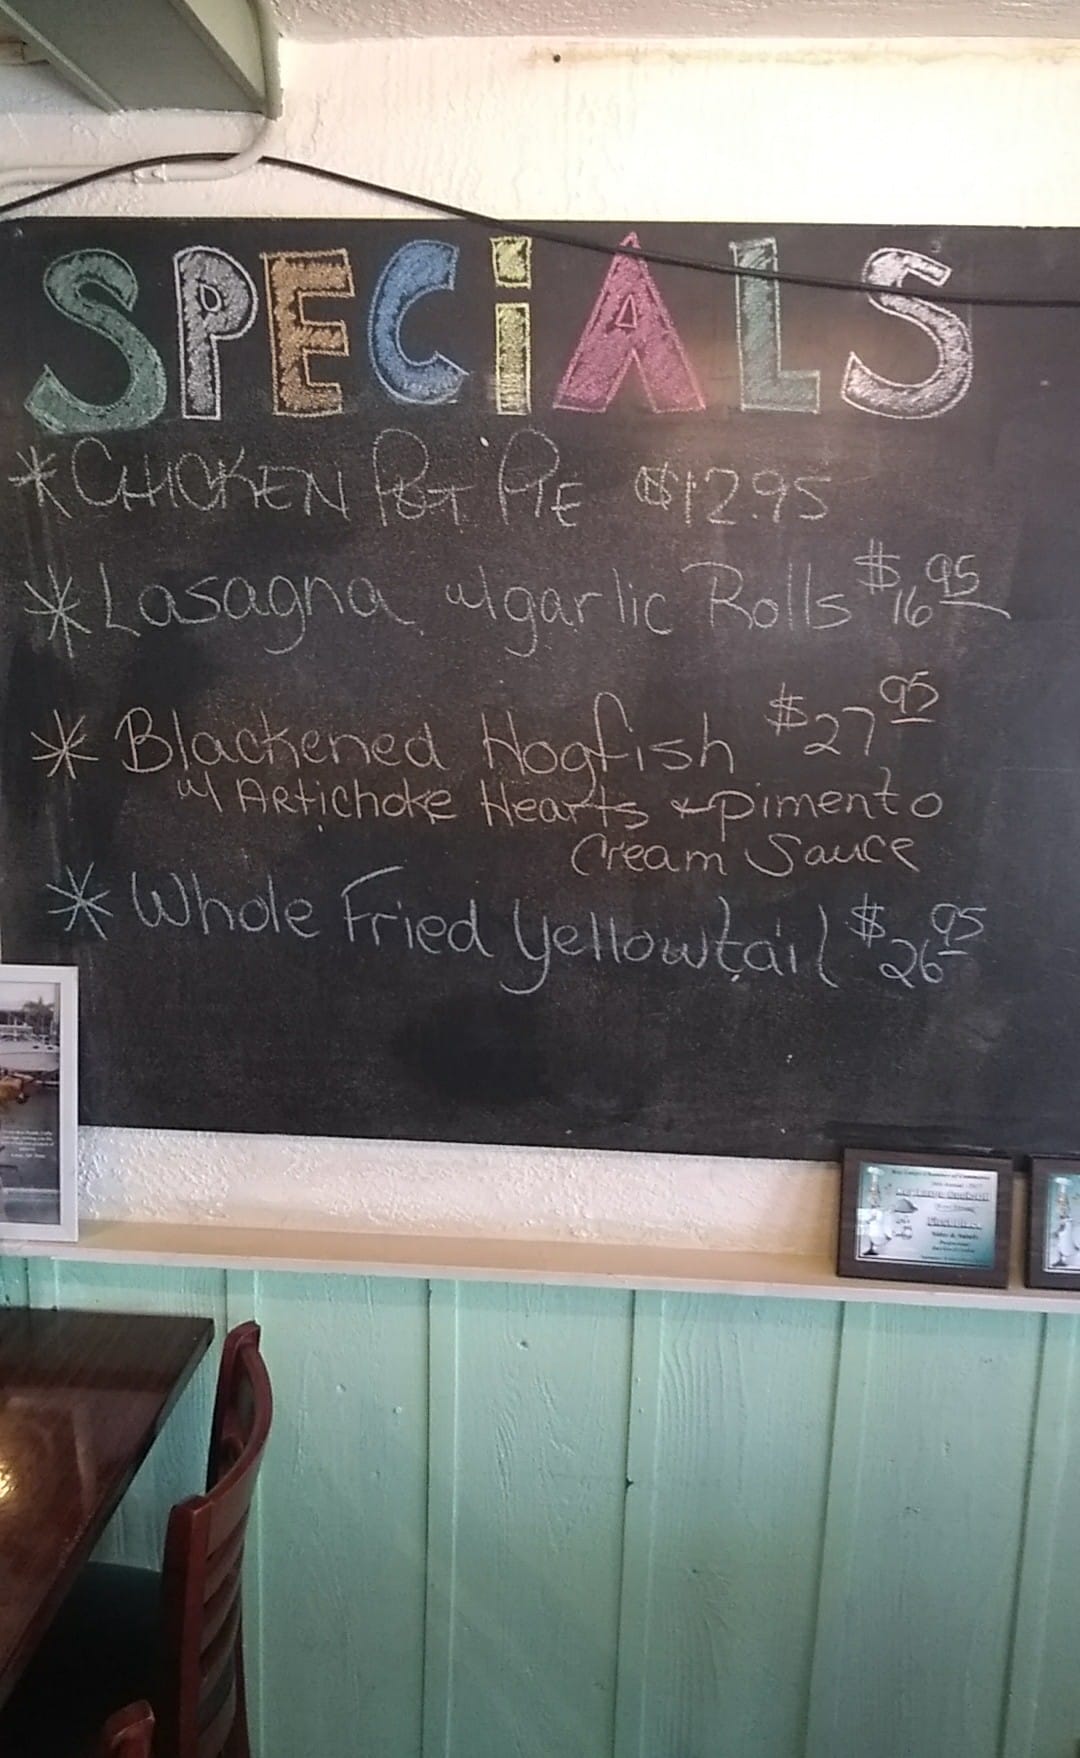 SPECiALS
* CHICKEN POT PIE $12.95
* Lasagna w/garlic Rolls $16 95
* Blackened Hogfish $27 95
w/ ARtichoke Hearts & pimento
Cream Sauce
* Whole Fried Yellowtail $26 95
Key Largo Chamber of Commerce